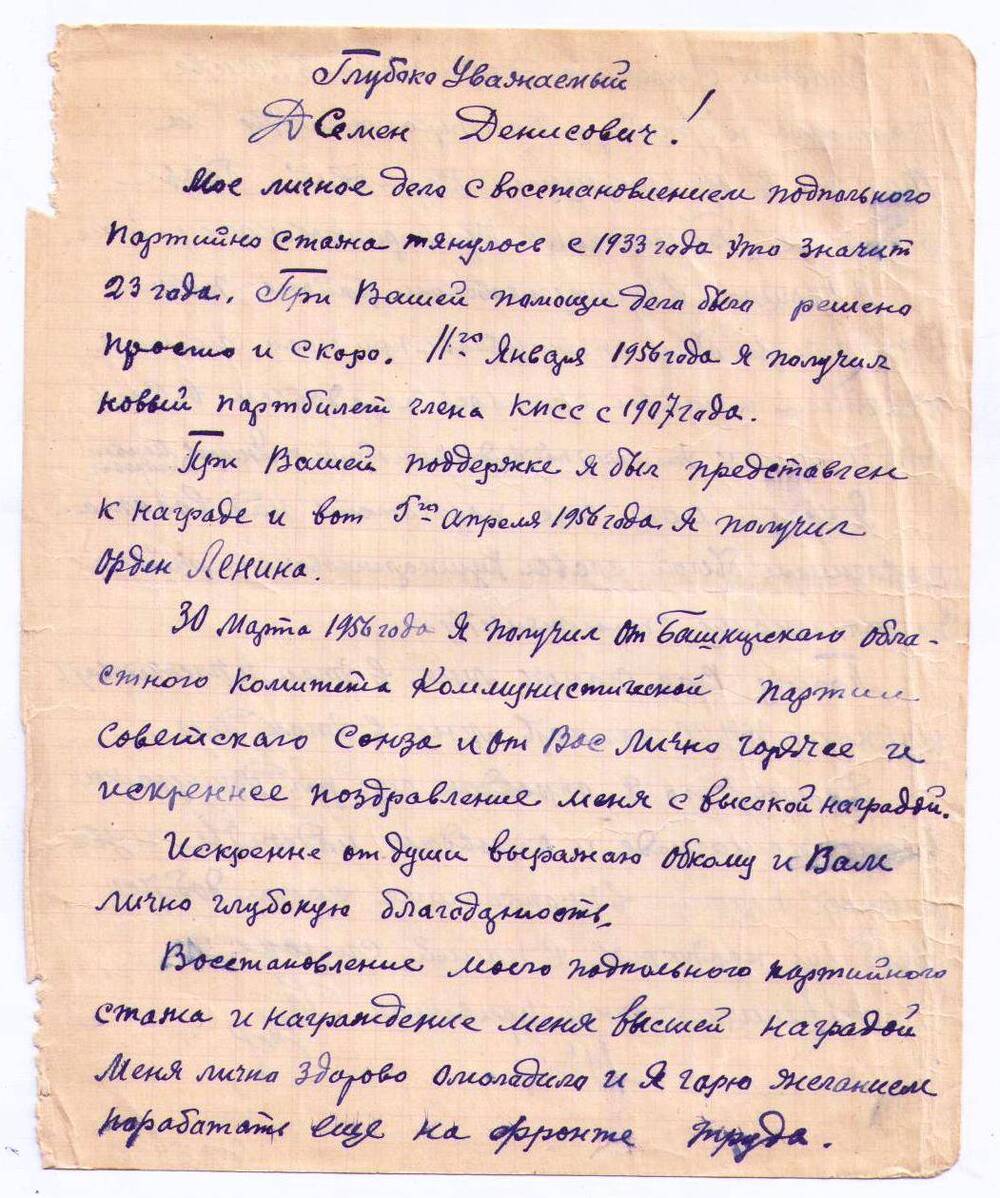 Глубоко Уважаемый
Семен Денисович!
Мое личное дело с восстановлением подпольного
партийно стажа тянулось с 1933 года это значит
23 года. При Вашей помощи дело было решено
просто и скоро. 11го Января 1956 года я получил
новый партбилет члена КПСС с 1907 года.
При Вашей поддержке я был представлен
к награде и вот 5го апреля 1956 года я получил
Орден Ленина.
30 Марта 1956 года я получил от Башкирского обла-
стного комитета Коммунистической партии
Советского Союза и от Вас лично горячее и
искреннее поздравление меня с высокой наградой.
Искренне от души выражаю Обкому и Вам
лично глубокую благодарность,
Восстановление моего подпольного партийного
стажа и награждение меня высшей наградой
меня лично здорово омолодило и я горю желанием
поработать еще на фронте труда.